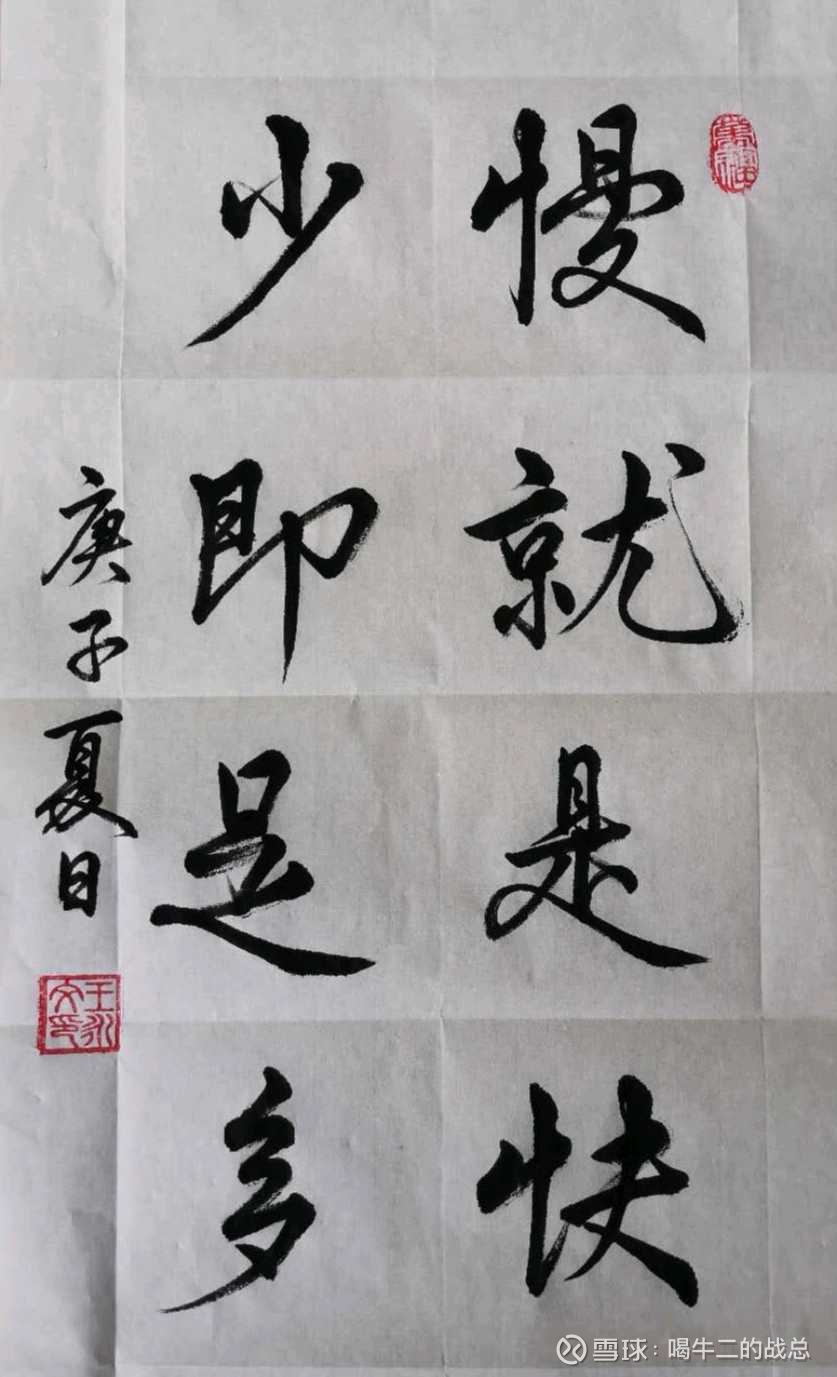 慢就是快
少即是多
庚子夏日
雪球：喝牛二的战总